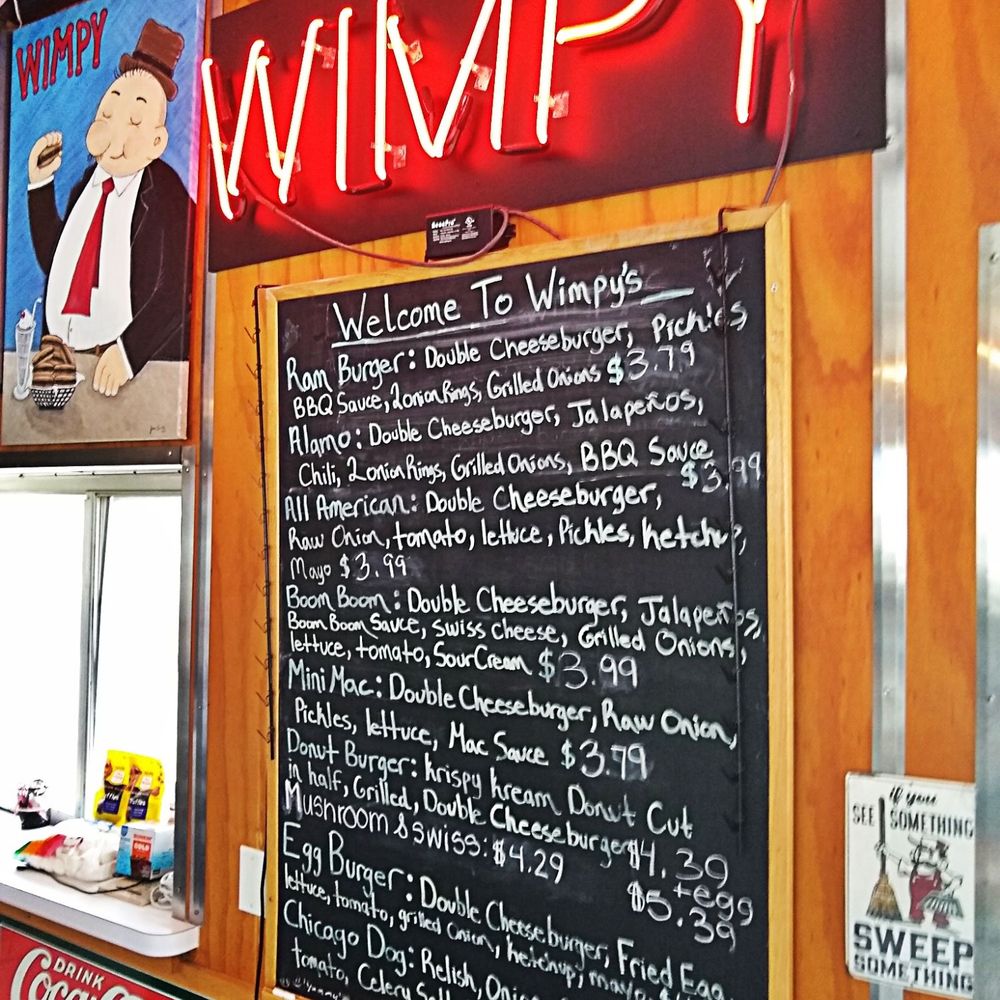 WIMPY
WIMPY
Welcome To Wimpy's
Ram Burger: Double Cheeseburger, Pickles
BBQ Sauce, 2 onion Rings, Grilled Onions $3.79
Alamo: Double Cheeseburger, Jalapeños,
Chili, 2 onion Rings, Grilled Onions, BBQ Sauce
$3.99
All American: Double Cheeseburger,
Raw Onion, tomato, lettuce, Pickles, Ketchup,
Mayo $3.99
Boom Boom: Double Cheeseburger, Jalapeños,
Boom Boom Sauce, Swiss cheese, Grilled Onions,
lettuce, tomato, Sour Cream $3.99
Mini Mac: Double Cheeseburger, Raw Onion,
Pickles, lettuce, Mac Sauce $3.79
Donut Burger: Krispy Kream Donut Cut
in half, Grilled, Double Cheeseburger $4.39
Mushroom & Swiss: $4.29 +egg
$5.39
Egg Burger: Double Cheeseburger, Fried Egg
lettuce, tomato, grilled Onion, Ketchup, mayo
Chicago Dog: Relish, Onio
tomato, Celery Salt
if you
SEE SOMETHING
SWEEP
SOMETHING
DRINK
Coca